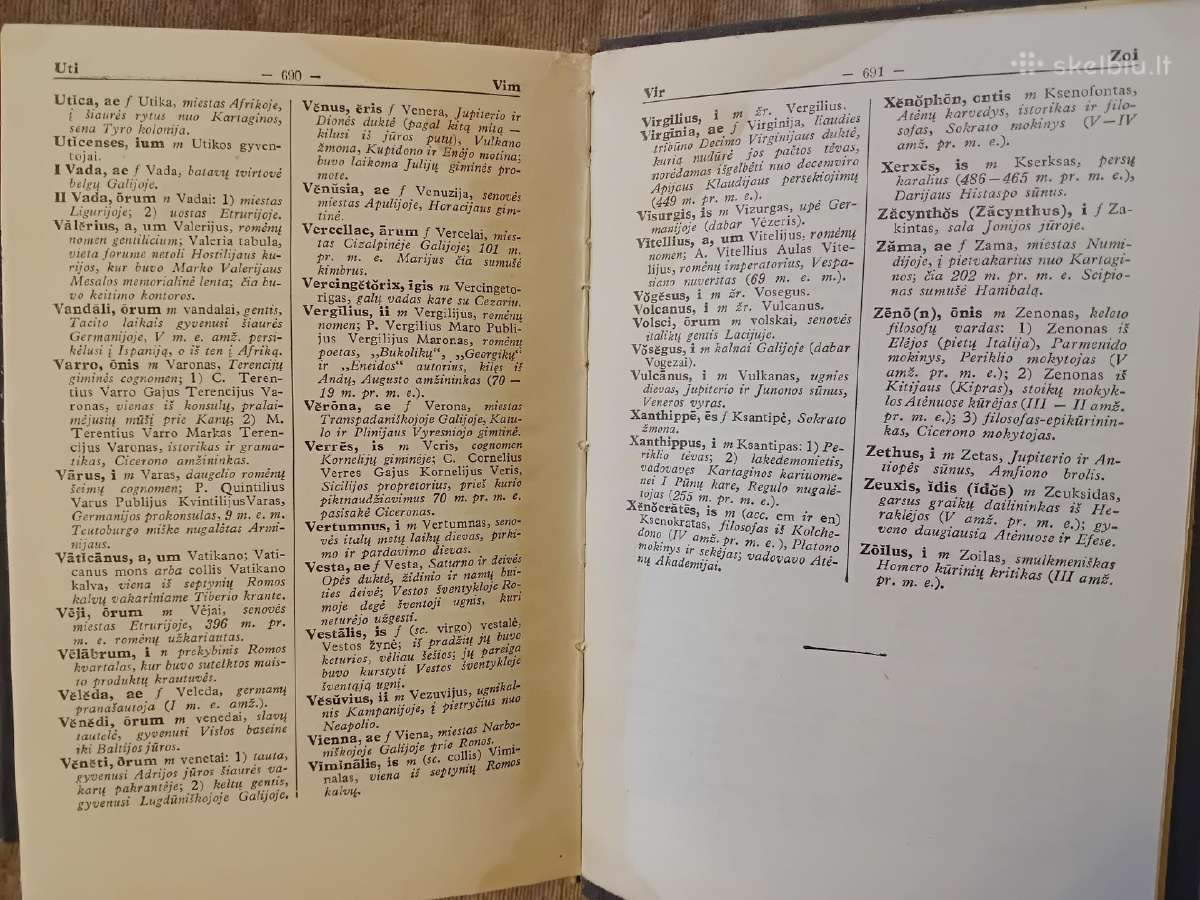 Uti
— 690 —
Vim
Utĭca, ae f Utika, miestas Afrikoje,
į šiaurės rytus nuo Kartaginos,
sena Tyro kolonija.
Uticenses, ium m Utikos gyven-
tojai.
I Vada, ae f Vada, batavų tvirtovė
belgų Galijoje.
II Vada, ōrum n Vadai: 1) miestas
Ligurijoje; 2) uostas Etrurijoje.
Vălĕrius, a, um Valerijus, romėnų
nomen gentilicium; Valeria tabula,
vieta forume netoli Hostilijaus ku-
rijos, kur buvo Marko Valerijaus
Mesalos memorialinė lenta; čia bu-
vo keitimo kontoros.
Vandăli, ōrum m vandalai, gentis,
Tacito laikais gyvenusi šiaurės
Germanijoje, V m. e. amž. persi-
kėlusi į Ispaniją, o iš ten į Afriką.
Varro, ōnis m Varonas, Terencijų
giminės cognomen; 1) C. Teren-
tius Varro Gajus Terencijus Va-
ronas, vienas iš konsulų, pralai-
mėjusių mūšį prie Kanų; 2) M.
Terentius Varro Markas Teren-
cijus Varonas, istorikas ir grama-
tikas, Cicerono amžininkas.
Vārus, i m Varas, daugelio romėnų
šeimų cognomen; P. Quintilius
Varus Publijus KvintilijusVaras,
Germanijos prokonsulas, 9 m. e. m.
Teutoburgo miške nugalėtas Armi-
nijaus.
Vātĭcānus, a, um Vatikano; Vati-
canus mons arba collis Vatikano
kalva, viena iš septynių Romos
kalvų vakariniame Tiberio krante.
Vēji, ōrum m Vėjai, senovės
miestas Etrurijoje, 396 m. pr.
m. e. romėnų užkariautas.
Vēlābrum, i n prekybinis Romos
kvartalas, kur buvo sutelktos mais-
to produktų krautuvės.
Vĕlĕda, ae f Veleda, germanų
pranašautoja (I m. e. amž.).
Vĕnĕdi, ōrum m venedai, slavų
tautelė, gyvenusi Vislos baseine
iki Baltijos jūros.
Vĕnĕti, ōrum m venetai: 1) tauta,
gyvenusi Adrijos jūros šiaurės va-
karų pakrantėje; 2) keltų gentis,
gyvenusi Lugdūniškojoje Galijoje.
Vĕnus, ĕris f Venera, Jupiterio ir
Dionės duktė (pagal kitą mitą —
kilusi iš jūros putų), Vulkano
žmona, Kupidono ir Enėjo motina;
buvo laikoma Julijų giminės pro-
mote.
Vĕnŭsia, ae f Venuzija, senovės
miestas Apulijoje, Horacijaus gim-
tinė.
Vercellae, ārum f Vercelai, mies-
tas Cizalpinėje Galijoje; 101 m.
pr. m. e. Marijus čia sumušė
kimbrus.
Vercingĕtŏrix, ĭgis m Vercingeto-
rigas, galų vadas kare su Cezariu.
Vergĭlius, ii m Vergilijus, romėnų
nomen; P. Vergilius Maro Publi-
jus Vergilijus Maronas, romėnų
poetas, „Bukolikų“, „Georgikų“
ir „Eneidos“ autorius, kilęs iš
Andų, Augusto amžininkas (70 —
19 m. pr. m. e.).
Vērōna, ae f Verona, miestas
Transpadaniškojoje Galijoje, Katu-
lo ir Plinijaus Vyresniojo gimtinė.
Verrēs, is m Veris, cognomen
Kornelijų giminėje; C. Cornelius
Verres Gajus Kornelijus Veris,
Sicilijos propretorius, prieš kurio
piktnaudžiavimus 70 m. pr. m. e.
pasisakė Ciceronas.
Vertumnus, i m Vertumnas, seno-
vės italų metų laikų dievas, pirki-
mo ir pardavimo dievas.
Vesta, ae f Vesta, Saturno ir deivės
Opės duktė, židinio ir namų bui-
ties deivė; Vestos šventykloje Ro-
moje degė šventoji ugnis, kuri
neturėjo užgesti.
Vestālis, is f (sc. virgo) vestalė,
Vestos žynė; iš pradžių jų buvo
keturios, vėliau šešios; jų pareiga
buvo kurstyti Vestos šventykloje
šventąją ugnį.
Vĕsŭvius, ii m Vezuvijus, ugnikal-
nis Kampanijoje, į pietryčius nuo
Neapolio.
Vienna, ae f Viena, miestas Narbo-
niškojoje Galijoje prie Ronos.
Vīmĭnālis, is m (sc. collis) Vimi-
nalas, viena iš septynių Romos
kalvų.
Vir
— 691 —
Zoi
skelbiu.lt
Virgilius, i m žr. Vergilius.
Virginia, ae f Virginija, liaudies
tribūno Decimo Virginijaus duktė,
kurią nudūrė jos pačios tėvas,
norėdamas išgelbėti nuo decemviro
Apijaus Klaudijaus persekiojimų
(449 m. pr. m. e.).
Visurgis, is m Vizurgas, upė Ger-
manijoje (dabar Vėzeris).
Vitellius, a, um Vitelijus, romėnų
nomen; A. Vitellius Aulas Vite-
lijus, romėnų imperatorius, Vespa-
siano nuverstas (69 m. e. m.).
Vŏgĕsus, i m žr. Vosegus.
Volcanus, i m žr. Vulcanus.
Volsci, ōrum m volskai, senovės
italikų gentis Lacijuje.
Vŏsĕgus, i m kalnai Galijoje (dabar
Vogezai).
Vulcānus, i m Vulkanas, ugnies
dievas, Jupiterio ir Junonos sūnus,
Veneros vyras.
Xanthippē, ēs f Ksantipė, Sokrato
žmona.
Xanthippus, i m Ksantipas: 1) Pe-
riklio tėvas; 2) lakedemonietis,
vadovavęs Kartaginos kariuome-
nei I Pūnų kare, Regulo nugalė-
tojas (255 m. pr. m. e.).
Xĕnŏcrătēs, is m (acc. em ir en)
Ksenokratas, filosofas iš Kolche-
dono (IV amž. pr. m. e.), Platono
mokinys ir sekėjas; vadovavo Atė-
nų Akademijai.
Xĕnŏphōn, ontis m Ksenofontas,
Atėnų karvedys, istorikas ir filo-
sofas, Sokrato mokinys (V—IV
amž. pr. m. e.).
Xerxēs, is m Kserksas, persų
karalius (486—465 m. pr. m. e.),
Darijaus Histaspo sūnus.
Zăcynthŏs (Zăcynthus), i f Za-
kintas, sala Jonijos jūroje.
Zăma, ae f Zama, miestas Numi-
dijoje, į pietvakarius nuo Kartagi-
nos; čia 202 m. pr. m. e. Scipio-
nas sumušė Hanibalą.
Zēnō(n), ōnis m Zenonas, keleto
filosofų vardas: 1) Zenonas iš
Elėjos (pietų Italija), Parmenido
mokinys, Periklio mokytojas (V
amž. pr. m. e.); 2) Zenonas iš
Kitijaus (Kipras), stoikų mokyk-
los Atėnuose kūrėjas (III — II amž.
pr. m. e.); 3) filosofas-epikūrinin-
kas, Cicerono mokytojas.
Zethus, i m Zetas, Jupiterio ir An-
tiopės sūnus, Amfiono brolis.
Zeuxis, ĭdis (ĭdŏs) m Zeuksidas,
garsus graikų dailininkas iš He-
raklėjos (V amž. pr. m. e.); gy-
veno daugiausia Atėnuose ir Efese.
Zōilus, i m Zoilas, smulkmeniškas
Homero kūrinių kritikas (III amž.
pr. m. e.).